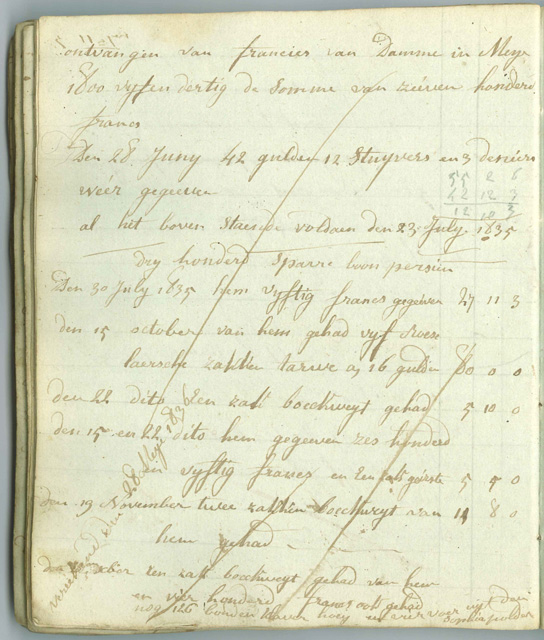 ontvangen van francies van Damme in Meye
1800 vyfen dertig de Somme van zeeven honderd
francs
Den 28 Juny 42 gulden 12 Stuyvers en 3 deniers
weer gegeeven
55 2 6
42 12 3
12 10 3
al het boven Staende voldaen den 23 July 1835
dry honderd Sparre boon persen
Den 30 July 1835 hem vyftig francs gegeeven 27 11 3
den 15 october van hem gehad vyf
laersche zakken tarwe a 16 gulden 80 0 0
den 22 dito Een zak boeckweyt gehad 5 10 0
den 15 en 22 dito hem gegeven zes honderd
en vyftig francs en Een zak gerste 5 5 0
den 19 November twee zakken boeckweyt aan 11 8 0
hem gehad
den xber Een zak boeckweyt gehad van hem
en vier honderd francs ook gehad
nog 126 bonden Klaver hoey en vier voer uyt den
den 28 Mey 183